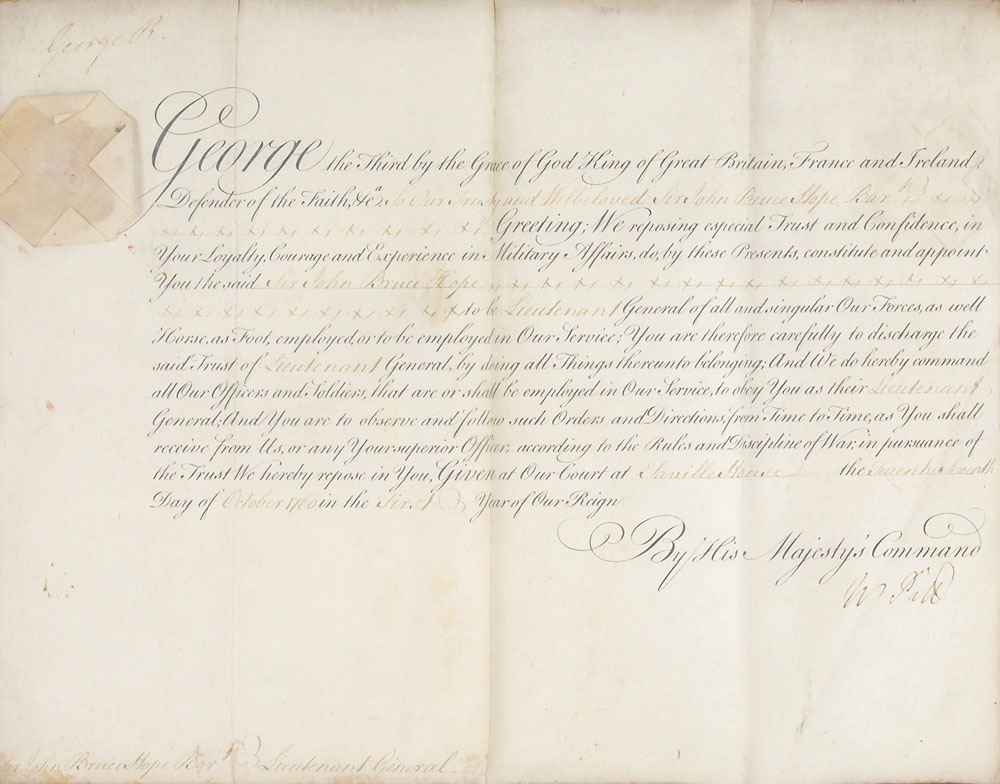 George R.
George the Third by the Grace of God King of Great Britain, France and Ireland,
Defender of the Faith, &c.a To Our Trusty and Welbeloved Sir John Bruce Hope Bar.t
Greeting; We reposing especial Trust and Confidence, in
Your Loyalty, Courage and Experience in Military Affairs, do, by these Presents, constitute and appoint
You the said Sir John Bruce Hope
to be Lieutenant General of all and singular Our Forces, as well
Horse, as Foot, employed, or to be employed in Our Service; You are therefore carefully to discharge the
said Trust of Lieutenant General, by doing all Things thereunto belonging; And We do hereby command
all Our Officers and Soldiers, that are or shall be employed in Our Service, to obey You as their Lieutenant
General; And You are to observe and follow such Orders and Directions, from Time to Time, as You shall
receive from Us, or any Your superior Officer, according to the Rules and Discipline of War, in pursuance of
the Trust We hereby repose in You, Given at Our Court at Saville House the Twenty Seventh
Day of October 1760 in the First Year of Our Reign
By His Majesty's Command
W Pitt
Sir John Bruce Hope Bar.t Lieutenant General